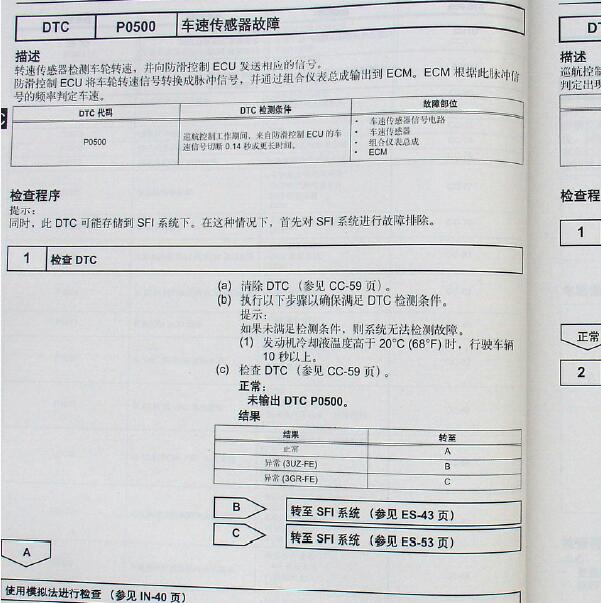 DTC P0500 车速传感器故障
描述
转速传感器检测车轮转速，并向防滑控制 ECU 发送相应的信号。
防滑控制 ECU 将车轮转速信号转换成脉冲信号，并通过组合仪表总成输出到 ECM。ECM 根据此脉冲信
号的频率判定车速。
DTC 代码 DTC 检测条件 故障部位
P0500 巡航控制工作期间，来自防滑控制 ECU 的车
速信号切断 0.14 秒或更长时间。
• 车速传感器信号电路
• 车速传感器
• 组合仪表总成
• ECM
检查程序
提示：
同时，此 DTC 可能存储到 SFI 系统下。在这种情况下，首先对 SFI 系统进行故障排除。
1 检查 DTC
(a) 清除 DTC（参见 CC-59 页）。
(b) 执行以下步骤以确保满足 DTC 检测条件。
提示：
如果未满足检测条件，则系统无法检测故障。
(1) 发动机冷却液温度高于 20°C (68°F) 时，行驶车辆
10 秒以上。
(c) 检查 DTC（参见 CC-59 页）。
正常：
未输出 DTC P0500。
结果
结果 转至
正常 A
异常 (3UZ-FE) B
异常 (3GR-FE) C
B 转至 SFI 系统（参见 ES-43 页）
C 转至 SFI 系统（参见 ES-53 页）
A
使用模拟法进行检查（参见 IN-40 页）
描述
巡航控制
判定出现
检查程
1
正常
2